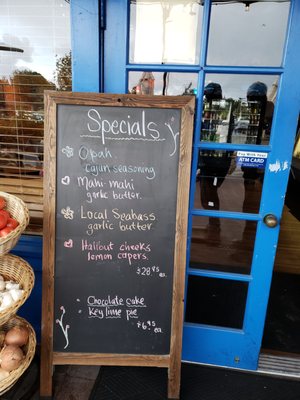 Specials
Opah
Cajun seasoning
Mahi-mahi
garlic butter.
Local Seabass
garlic butter
Halibut cheeks
lemon capers.
$28.95
Chocolate cake
Key lime pie
$6.95 ea
ATM CARD